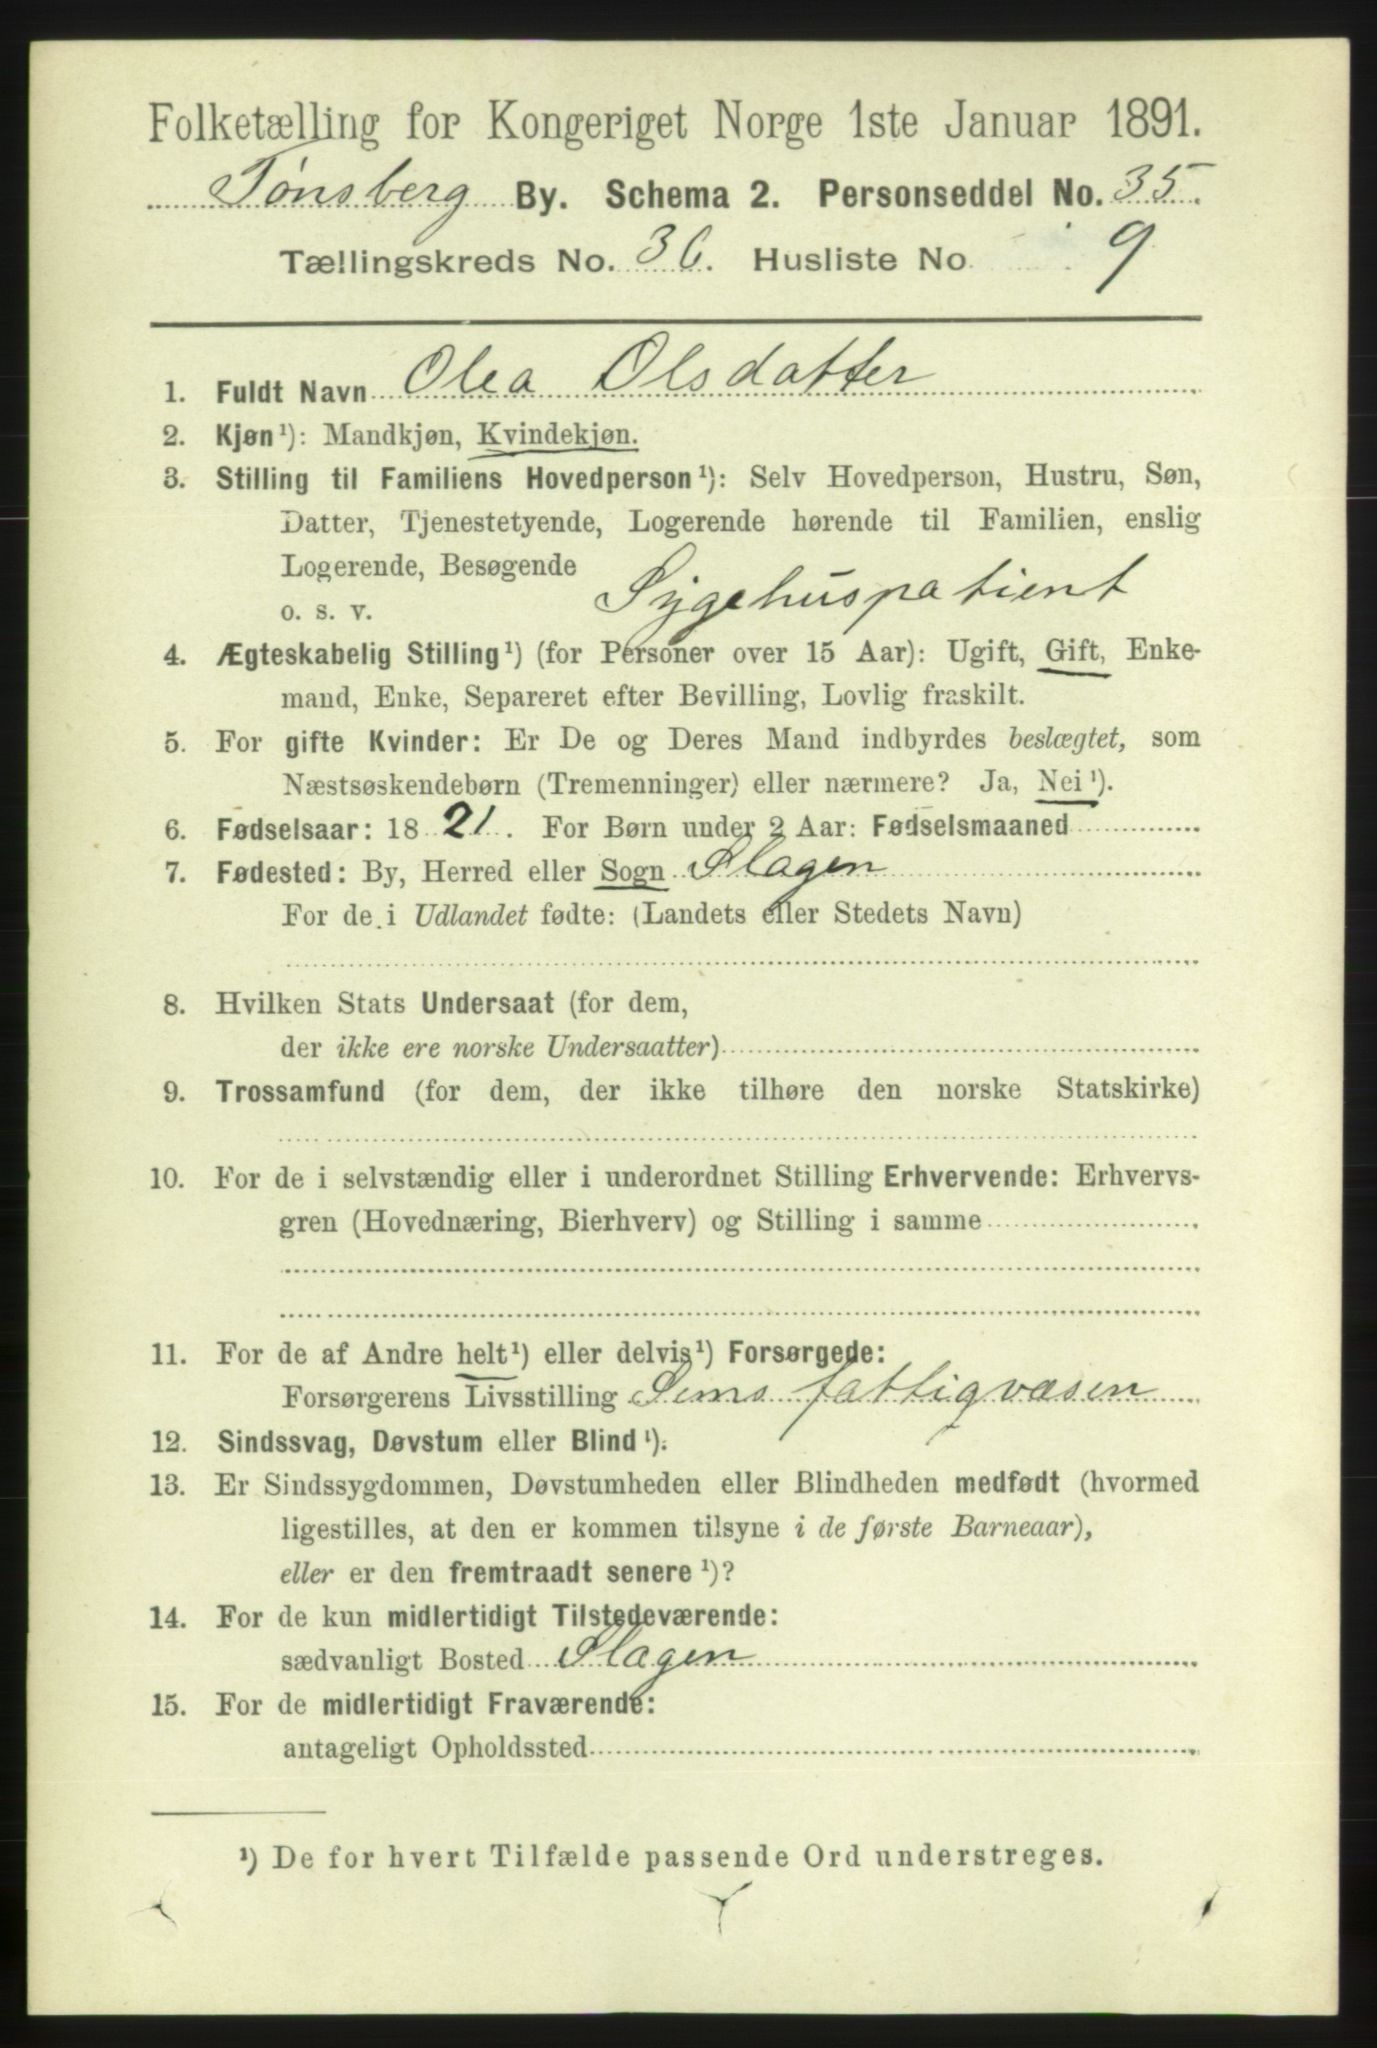 Folketælling for Kongeriget Norge 1ste Januar 1891.
Tønsberg By. Schema 2. Personseddel No. 35.
Tællingskreds No. 36. Husliste No 9
1. Fuldt Navn Olea Olsdatter
2. Kjøn¹): Mandkjøn, Kvindekjøn.
3. Stilling til Familiens Hovedperson¹): Selv Hovedperson, Hustru, Søn,
Datter, Tjenestetyende, Logerende hørende til Familien, enslig
Logerende, Besøgende
o. s. v. Sygehuspatient
4. Ægteskabelig Stilling¹) (for Personer over 15 Aar): Ugift, Gift, Enke-
mand, Enke, Separeret efter Bevilling, Lovlig fraskilt.
5. For gifte Kvinder: Er De og Deres Mand indbyrdes beslægtet, som
Næstsøskendebørn (Tremenninger) eller nærmere? Ja, Nei¹).
6. Fødselsaar: 1821. For Børn under 2 Aar: Fødselsmaaned
7. Fødested: By, Herred eller Sogn Slagen
For de i Udlandet fødte: (Landets eller Stedets Navn)
8. Hvilken Stats Undersaat (for dem,
der ikke ere norske Undersaatter)
9. Trossamfund (for dem, der ikke tilhøre den norske Statskirke)
10. For de i selvstændig eller i underordnet Stilling Erhvervende: Erhvervs-
gren (Hovednæring, Bierhverv) og Stilling i samme
11. For de af Andre helt¹) eller delvis¹) Forsørgede:
Forsørgerens Livsstilling Sems fattigvæsen
12. Sindssvag, Døvstum eller Blind¹).
13. Er Sindssygdommen, Døvstumheden eller Blindheden medfødt (hvormed
ligestilles, at den er kommen tilsyne i de første Barneaar),
eller er den fremtraadt senere¹)?
14. For de kun midlertidigt Tilstedeværende:
sædvanligt Bosted Slagen
15. For de midlertidigt Fraværende:
antageligt Opholdssted
¹) De for hvert Tilfælde passende Ord understreges.